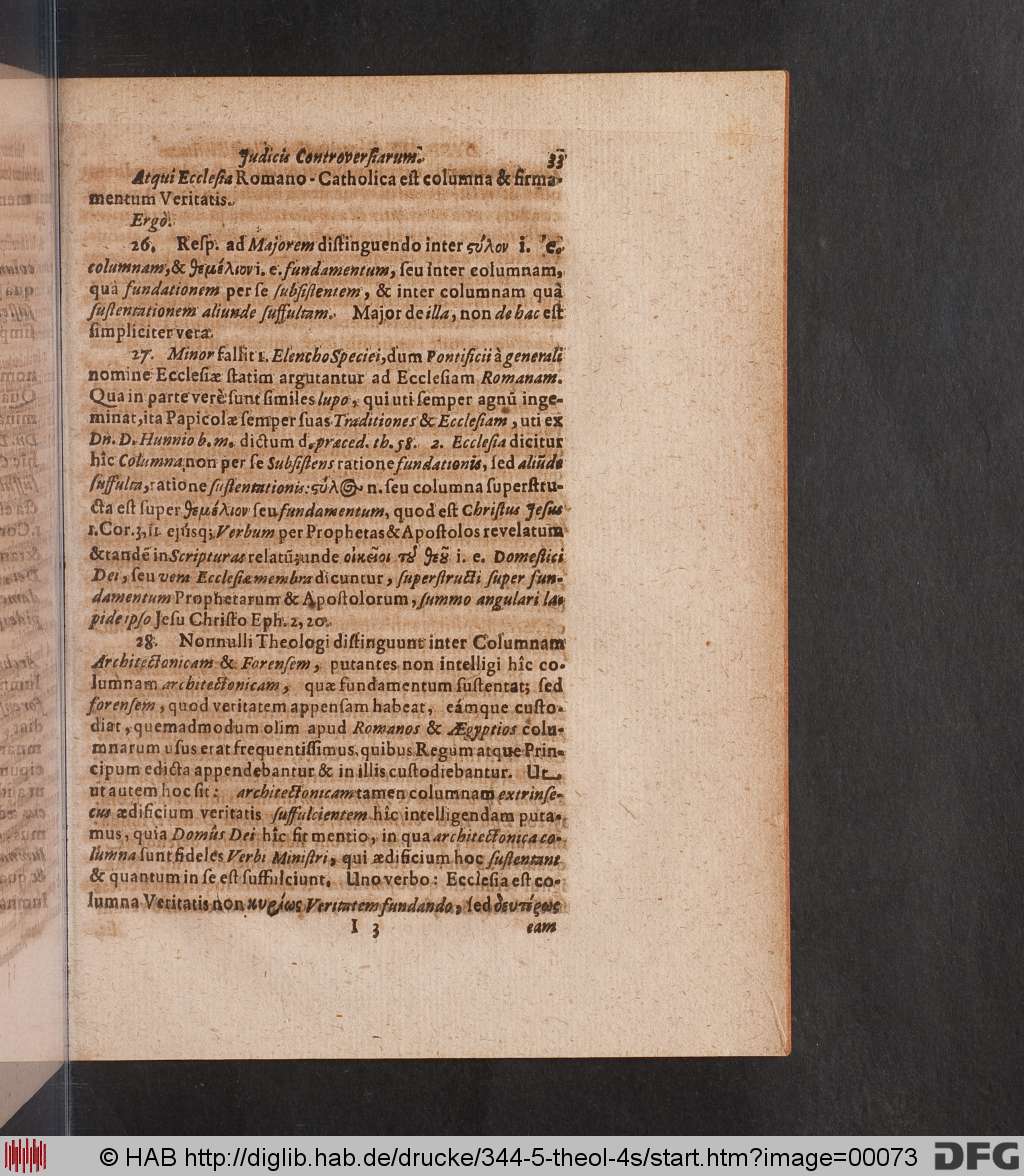 Judiciis Controversiarum. 33
Atqui Ecclesia Romano-Catholica est columna & firma-
mentum Veritatis.
Ergò.
26. Resp. ad Majorem distinguendo inter ϛύλον i. e.
columnam, & θεμέλιον i. e. fundamentum, seu inter columnam,
quâ fundationem per se subsistentem, & inter columnam quâ
sustentationem aliunde suffultam. Major de illa, non de hac est
simpliciter vera.
27. Minor fallit 1. Elencho Speciei, dum Pontificii à generali
nomine Ecclesiæ statim argutantur ad Ecclesiam Romanam.
Qua in parte verè sunt similes lupo, qui uti semper agnũ inge-
minat, ita Papicolæ semper suas Traditiones & Ecclesiam, uti ex
Dn. D. Hunnio b. m. dictum d. præced. th. 58. 2. Ecclesia dicitur
hîc Columna, non per se Subsistens ratione fundationis, sed aliũde
suffulta, ratione sustentationis: ϛύλος n. seu columna superstru-
cta est super θεμέλιον seu fundamentum, quod est Christus Jesus
1. Cor. 3, 11. ejúsq; Verbum per Prophetas & Apostolos revelatum
& tandẽ in Scripturas relatũ; unde οἰκεῖοι τȣ͂ θεȣ͂ i. e. Domestici
Dei, seu vera Ecclesiæ membra dicuntur, superstructi super fun-
damentum Prophetarum & Apostolorum, summo angulari la-
pide ipso Jesu Christo Eph. 2, 20.
28. Nonnulli Theologi distinguunt inter Columnam
Architectonicam & Forensem, putantes non intelligi hîc co-
lumnam architectonicam, quæ fundamentum sustentat; sed
forensem, quod veritatem appensam habeat, eámque custo-
diat, quemadmodum olim apud Romanos & Ægyptios colu-
mnarum usus erat frequentissimus, quibus Regum atque Prin-
cipum edicta appendebantur & in illis custodiebantur. Ut
ut autem hoc sit: architectonicam tamen columnam extrinse-
cus ædificium veritatis suffulcientem hîc intelligendam puta-
mus, quia Domûs Dei hîc fit mentio, in qua architectonica co-
lumna sunt fideles Verbi Ministri, qui ædificium hoc sustentant
& quantum in se est suffulciunt. Uno verbo: Ecclesia est co-
lumna Veritatis non κυρίως Veritatem fundando, sed δευτέρως
I 3 eam
© HAB http://diglib.hab.de/drucke/344-5-theol-4s/start.htm?image=00073
DFG